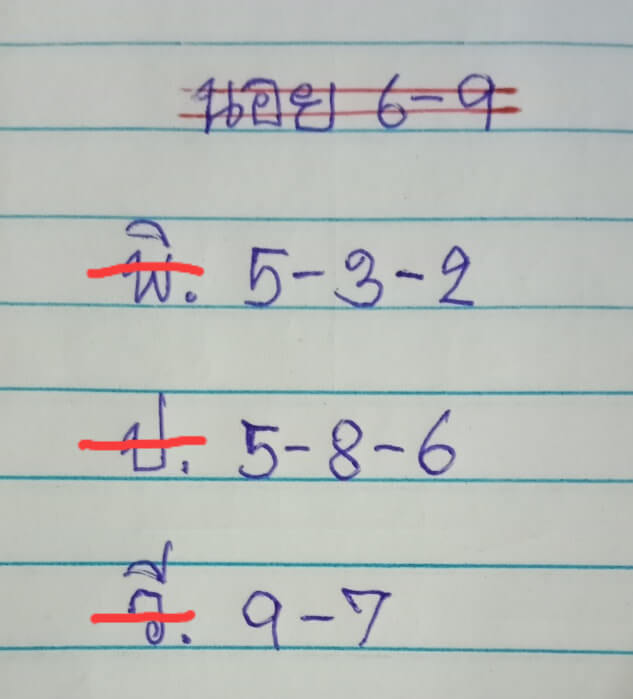 นอย 6-9
พิ. 5-3-2
ป. 5-8-6
วี. 9-7